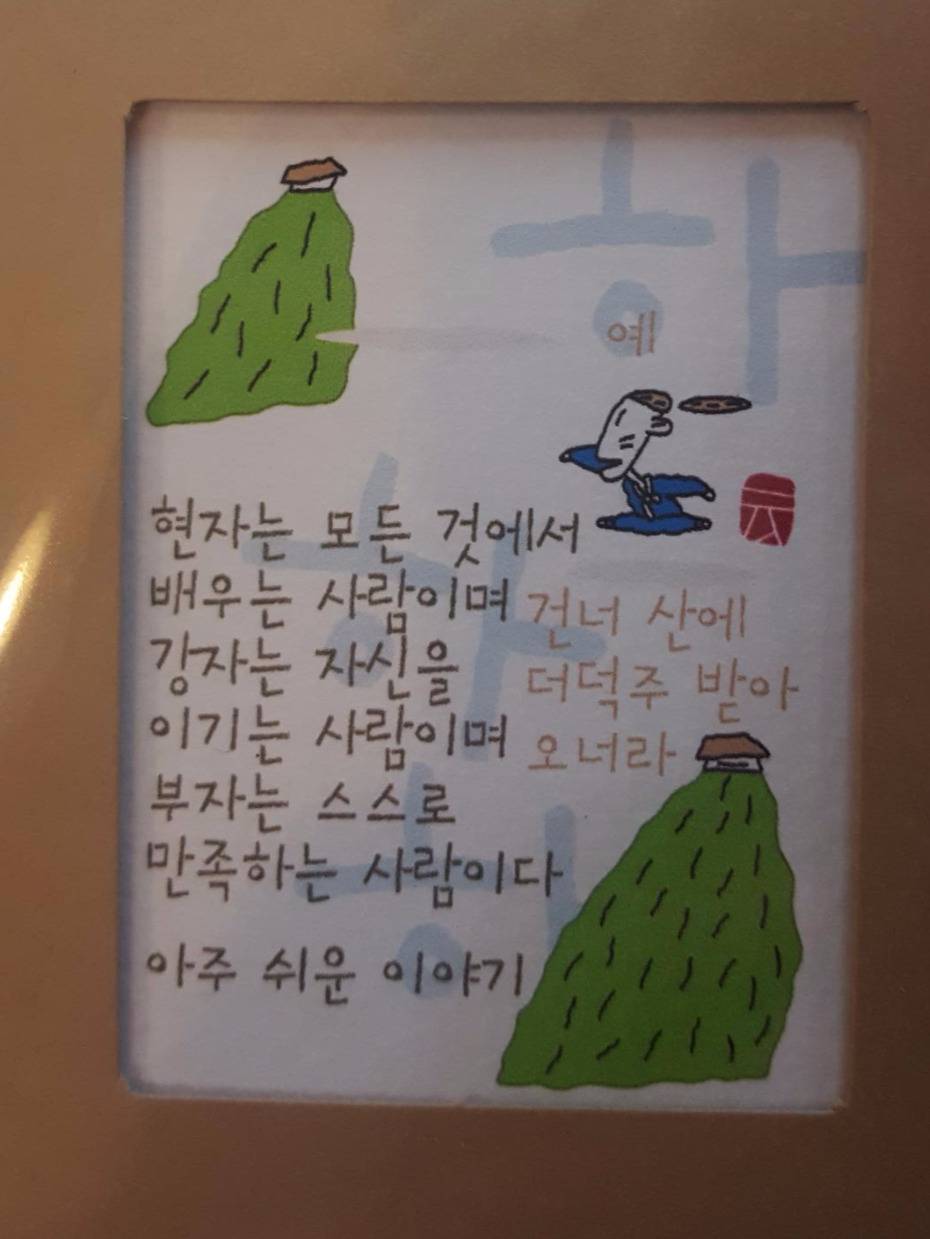 예
현자는 모든 것에서
배우는 사람이며
강자는 자신을
이기는 사람이며
부자는 스스로
만족하는 사람이다
아주 쉬운 이야기
건너 산에
더덕주 받아
오너라